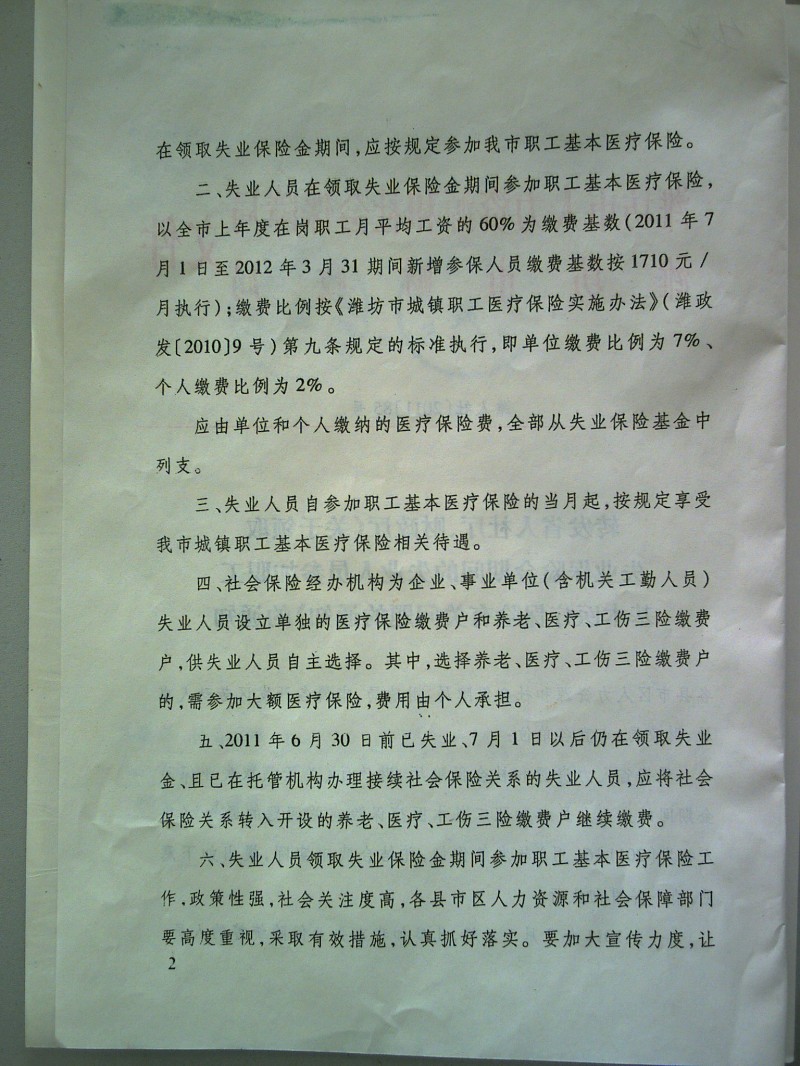 在领取失业保险金期间,应按规定参加我市职工基本医疗保险。
二、失业人员在领取失业保险金期间参加职工基本医疗保险,
以全市上年度在岗职工月平均工资的60%为缴费基数(2011年7
月1日至2012年3月31期间新增参保人员缴费基数按1710元/
月执行);缴费比例按《潍坊市城镇职工医疗保险实施办法》(潍政
发〔2010〕9号)第九条规定的标准执行,即单位缴费比例为7%、
个人缴费比例为2%。
应由单位和个人缴纳的医疗保险费,全部从失业保险基金中
列支。
三、失业人员自参加职工基本医疗保险的当月起,按规定享受
我市城镇职工基本医疗保险相关待遇。
四、社会保险经办机构为企业、事业单位(含机关工勤人员)
失业人员设立单独的医疗保险缴费户和养老、医疗、工伤三险缴费
户,供失业人员自主选择。其中,选择养老、医疗、工伤三险缴费户
的,需参加大额医疗保险,费用由个人承担。
五、2011年6月30日前已失业、7月1日以后仍在领取失业
金、且已在托管机构办理接续社会保险关系的失业人员,应将社会
保险关系转入开设的养老、医疗、工伤三险缴费户继续缴费。
六、失业人员领取失业保险金期间参加职工基本医疗保险工
作,政策性强,社会关注度高,各县市区人力资源和社会保障部门
要高度重视,采取有效措施,认真抓好落实。要加大宣传力度,让
2